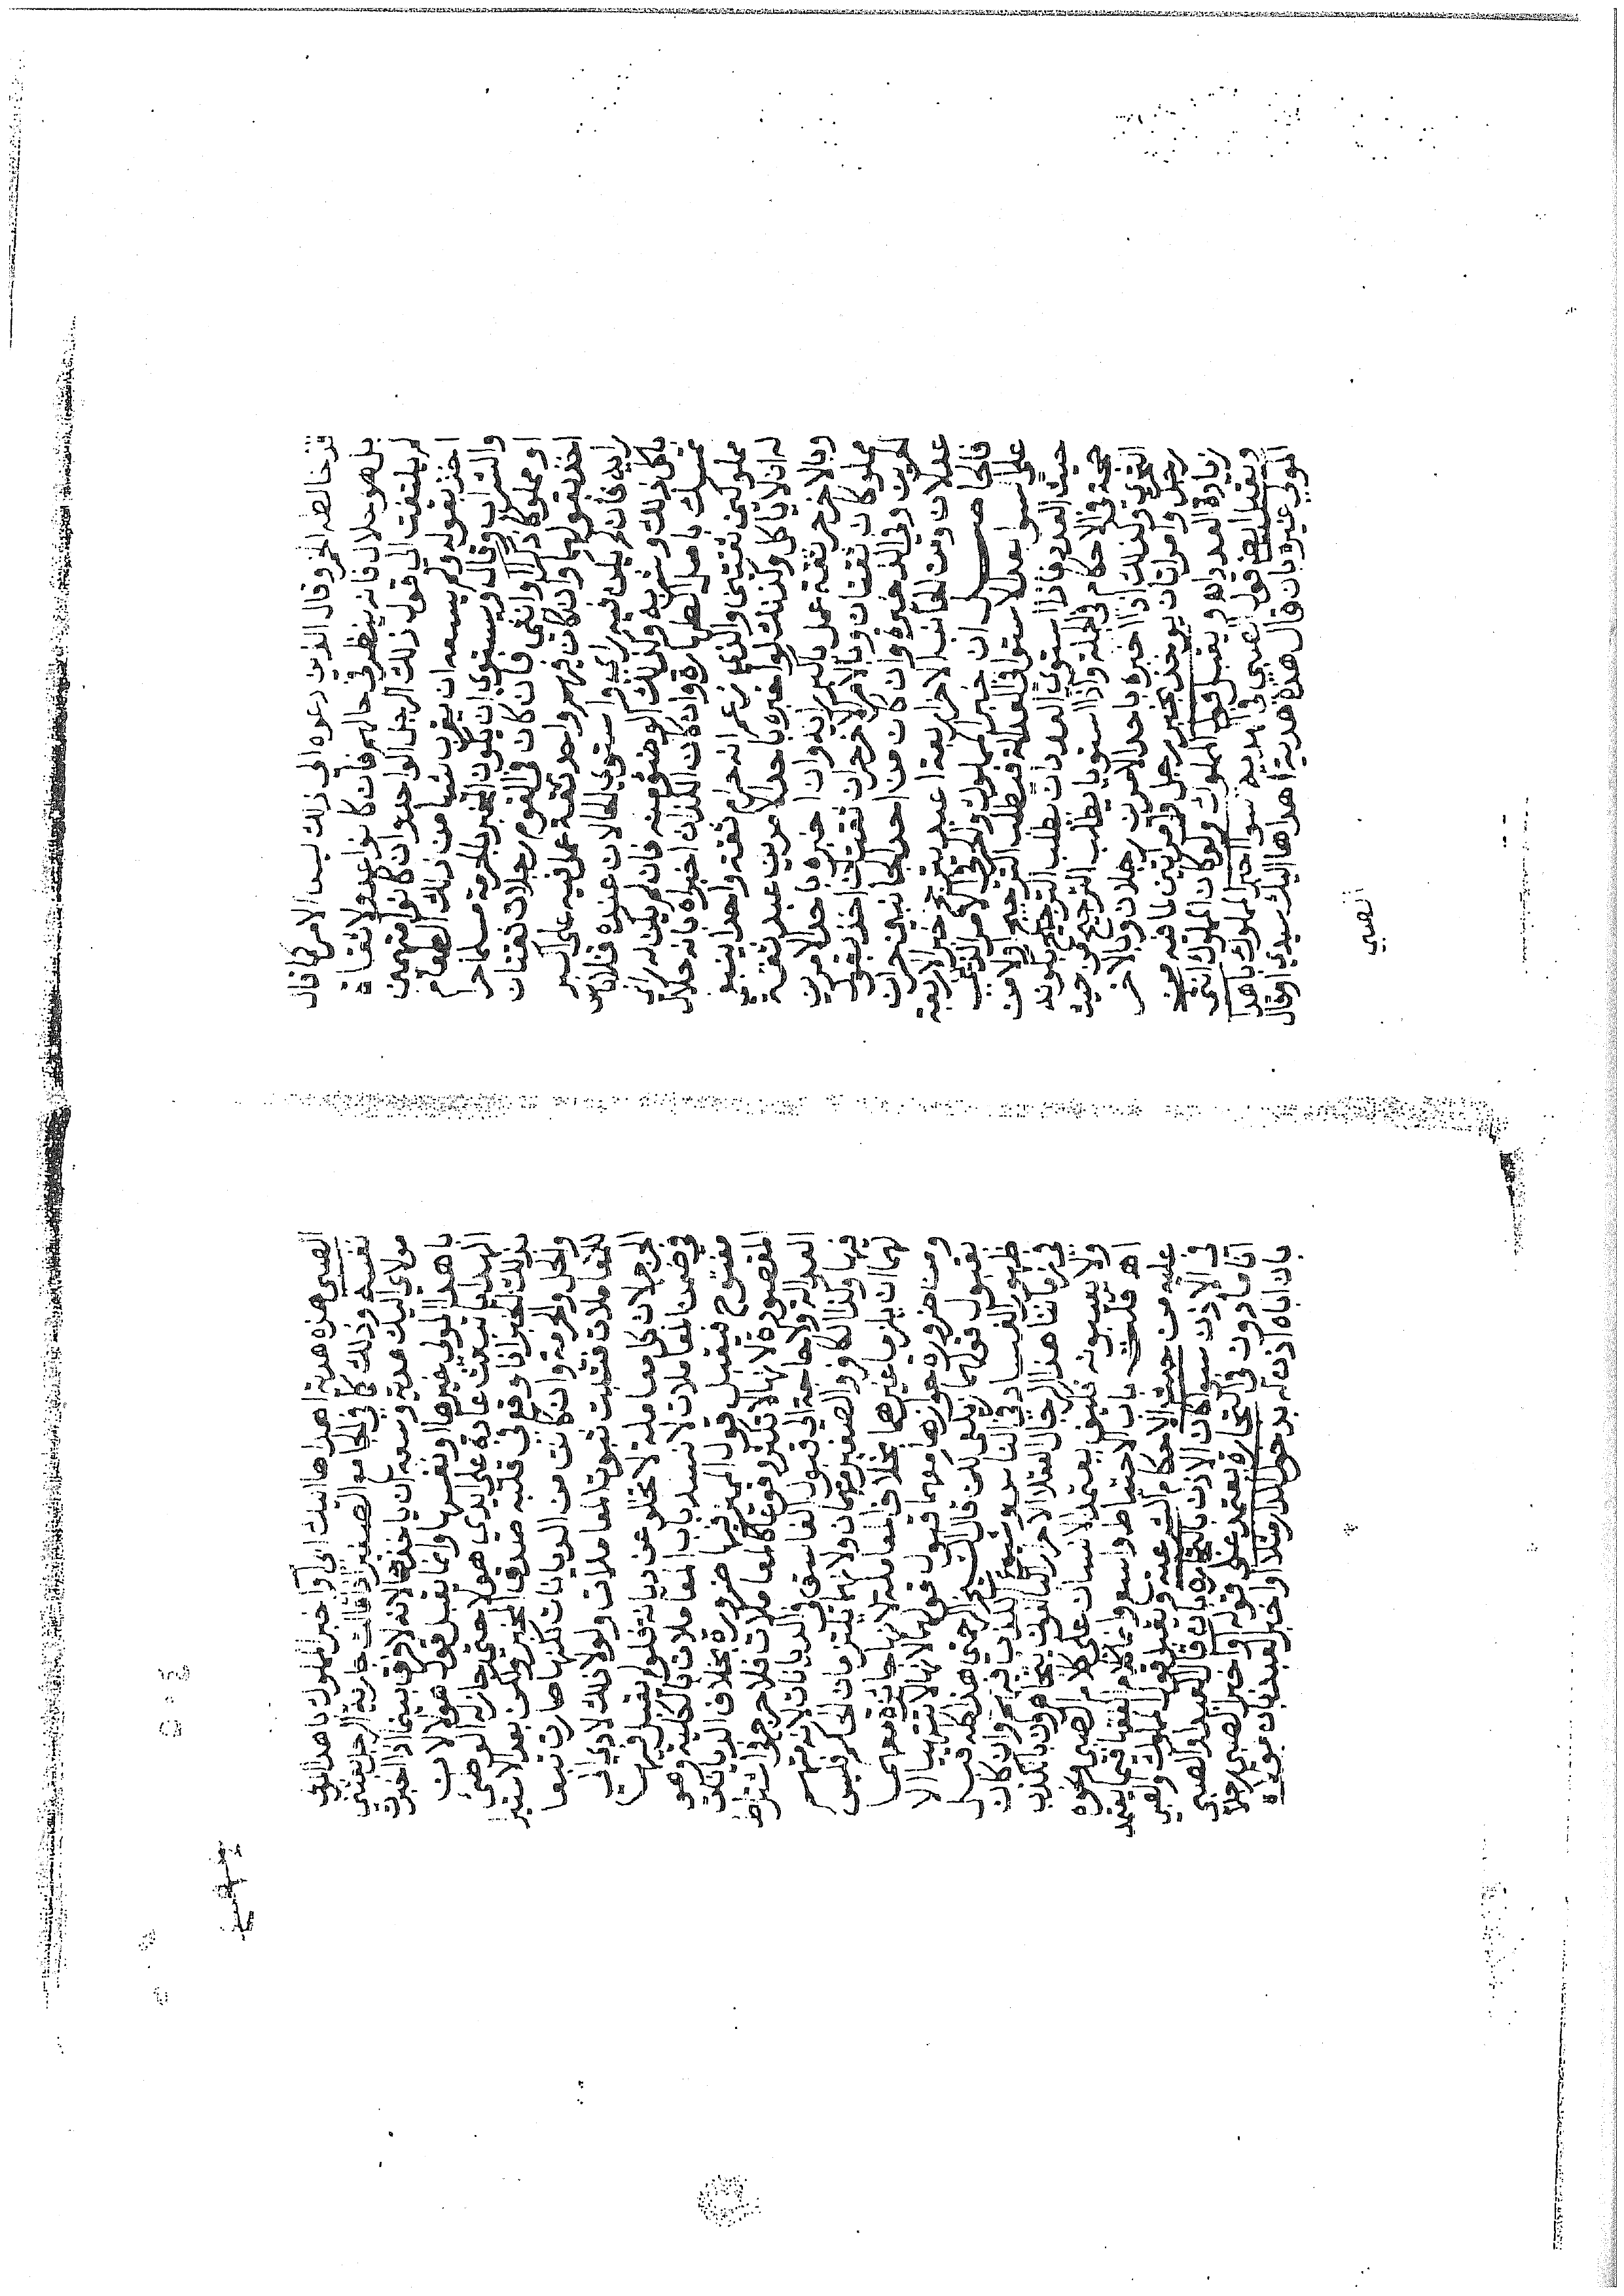 ثم خالطه الخمر وقال الذين دعوه الى ذلك ليس الامر كما قال
بل هو حلال فانه ينظر في حالهم فان كانوا عدولا ثقاة
لم يلتفت الى قول ذلك الرجل الواحد وان كانوا متهمين
اخذ بقوله ولم يسعه ان يقرب شيا من ذلك الطعام
والشراب وقال ويستوي ان يكون المخبر بالحرمة مسلما حرا
او مملوكا ذكرا او انثى فان كان في القوم رجلان ثقتان
اخذ بقولهما وان كان فيهم واحد ثقة عمل فيه على اكبر
رايه فان لم يكن فيه راي واستوى الحالان عنده فلا باس
باكل ذلك وشربه وكذلك الوضوء منه فان لم يكن له راي
تمسك باصل الطهارة وان كان اللذان اخبراه بانه حلال
مملوكين ثقتين والذي زعم انه حرام ثقة واحد ينبغي
له ان لا ياكل وكذلك لو اخبره باحد الامرين عبد ثقة
وبالاخر حر ثقة عمل باكبر رايه وان اخبره باحد الامرين
مملوكان ثقتان وبالامر الاخر حران ثقتان اخذ بقول
الحرين وفي الذخيرة وان كان من احد الجانبين حران
عدلان ومن الجانب الاخر اربعة اعبد يترجح خبر الاربعة
فالحاصل ان خبر المملوك والحر في الامر الديني
على السوا بعد الاستوا في العدالة فيطلب الترجيح اولا من
حيث العدد فاذا استوى العددان يطلب الترجيح بكونه
حجة في الاحكام في الجملة واذا استويا يطلب الترجيح من حيث
التحري وكذلك اذا اخبره باحد الامرين رجلان وبالاخر
رجل وامراتان يوخذ بخبر رجل وامراتين لما فيه من
زيادة العدد اهـ ويقبل قول المملوك ولو كان المملوك انثى
ويقبل ايضا قول الصبي في الهدية سوا اخبر المملوك باهدا
المولى غيره بان قال هذه هدية اهداها اليك سيدي او قال
الصبي
الصبي هذه هدية اهداها اليك ابي او اخبر المملوك باهدا المولى
نفسه وذلك كما في الجامع الصغير اذا قالت جارية لرجل بعثني
مولاي اليك هدية وسعه ان ياخذها لانه لا فرق بينما اذا اخبرت
باهدا المولى غيرها او نفسها وانما يقبل قول هولا لان
الهدايا تبعث عادة على ايدي هولا حتى جاز له الوضي
بذلك الخبر اذا وقع في قلبه صدق المخبر ولكن بعد الاستبرا
والحل والحرمة وان كانت من الديانات لكنها صارت تبعا
للمعاملات فتثبت بثبوت المعاملات ولولا ذلك لادى الى
الحرج لان كل معاملة لا تخلو عن ديانة فلو لم يقبل فيها
في ضمن المعاملات لانسد باب المعاملات بالكلية وهو
مفتوح فيقبل قول المميز فيها ضرورة بخلاف الديانات
المقصودة لانها لا تكثر وقوعها كالمعاملات فلا حرج في اشتراط
العدالة ولا حاجة الى قبول الفاسق في الديانات لانه متهم
فيها وكذا الكافر والصغير متهمان ولانهما لا يلتزمان الحكم فليس
لهما ان يلزما غيرهما بخلاف المعاملة لانها جائزة معهما
ومن ضرورة جوازها معهما قبول قولهما لانها لا تتهيا الا
بقبول قولهما زيلعي لكن قال الشيخ الرحمتي هذا كله قبل
ظهور الفساد في الناس وشيوع الكذب فيهم وان كان
في زماننا هذا الرجال العقلا الاحرار البالغون يتجاهرون بالكذب
ولا يعيبونه فكيف يعتمد الانسان على كلام الصبي ونحوه
اهـ قلت باب الاحتياط واسع وانما كلام الفقها فيما يعتمد
عليه من حيث الاحكام الشرعية ويقبل قول المملوك والصبي
في الاذن سوا كان الاذن بالتجارة بان قال العبد او الصبي
انا ماذون في التجارة يعتمد على قوله او اخبر الصبي رجلا
بان اباه اذن له بدخول الدار مثلا او اخبر العبد بان مولاه